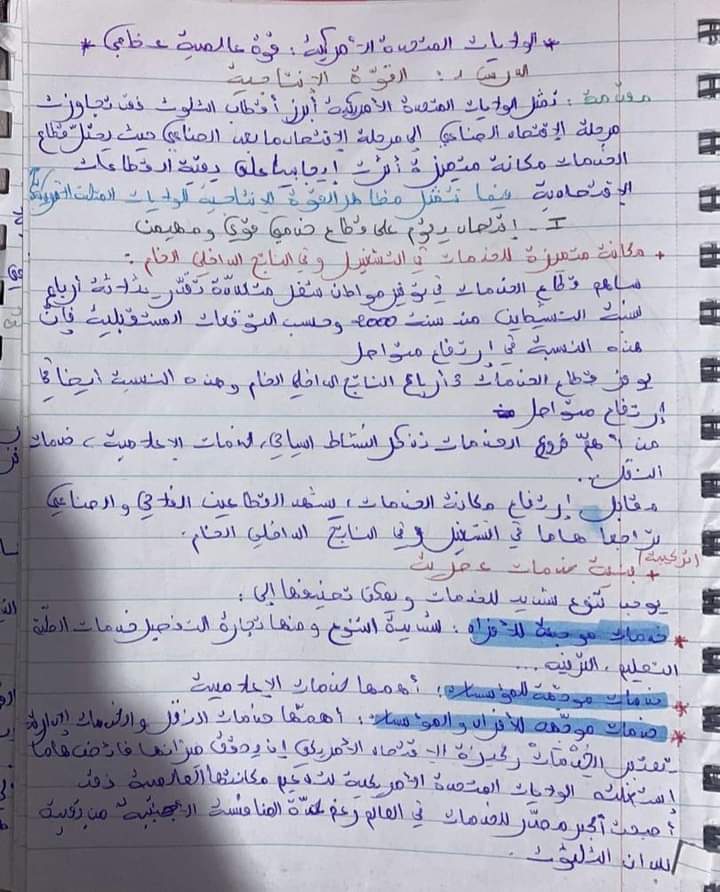 * الولايات المتحدة الأمريكية: قوة عالمية عظمى *
الدرس 1: القوة الإنتاجية
مقدمة: تمثل الولايات المتحدة الأمريكية أبرز أقطاب الثلوث فقد تجاوزت
مرحلة الاقتصاد الصناعي إلى مرحلة الاقتصاد ما بعد الصناعي حيث يحتل قطاع
الخدمات مكانة متميزة أثرت إيجابيا على بقية القطاعات
الاقتصادية فيما تتمثل مظاهر القوة الإنتاجية للولايات المتحدة الأمريكية؟
I - إقتصاد يقوم على قطاع خدمي قوي ومهيمن
+ مكانة متميزة للخدمات في التشغيل وفي الناتج الداخلي الخام:
ساهم قطاع الخدمات في توفير مواطن شغل متعددة تقدر بثلاثة أرباع
نسبة النشيطين منذ سنة 2000 وحسب التوقعات المستقبلية فإن
هذه النسبة في إرتفاع متواصل
يوفر قطاع الخدمات 3 أرباع الناتج الداخلي الخام وهذه النسبة أيضا في
إرتفاع متواصل
من أهم فروع الخدمات نذكر النشاط السياحي، خدمات الإعلامية، خدمات
النقل..
مقابل إرتفاع مكانة الخدمات، يشهد القطاعين الفلاحي والصناعي
تراجعا هاما في التشغيل وفي الناتج الداخلي الخام.
+ بنية خدمات عصرية (التركيبة)
يوجد تنوع شديد للخدمات ويمكن تصنيفها إلى:
* خدمات موجهة للأفراد: شديدة التنوع ومنها تجارة التفصيل خدمات الطبية
التعليم، الترفيه...
* خدمات موجهة للمؤسسات: أهمها خدمات الإعلامية
* خدمات موجهة للأفراد والمؤسسات: أهمها خدمات النقل والخدمات الإدارية
تعتبر الخدمات ركيزة الاقتصاد الأمريكي إذ يحقق ميزانها فائض هاما
إستغلته الولايات المتحدة الأمريكية لتدعيم مكانتها العالمية فقد
أصبحت أكبر مصدر للخدمات في العالم رغم شدة المنافسة الأجنبية من بقية
بلدان الثلوث.